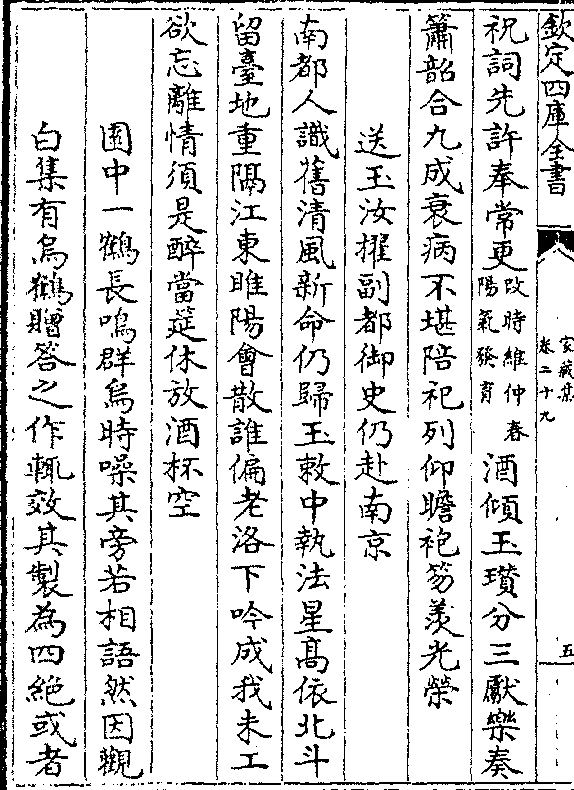 欽定四庫全書
家藏集
卷二十九
五
祝詞先許奉常更改時維仲春陽氣發育酒傾玉瓚分三獻樂奏
簫韶合九成衰病不堪陪祀列仰瞻袍笏羡光榮
送玉汝擢副都御史仍赴南京
南都人識舊清風新命仍歸玉敕中執法星髙依北斗
留臺地重隔江東睢陽會散誰偏老洛下吟成我未工
欲忘離情須是醉當筵休放酒杯空
園中一鶴長鳴群烏時噪其旁若相語然因觀
白集有烏鶴贈答之作輒效其製為四絶或者